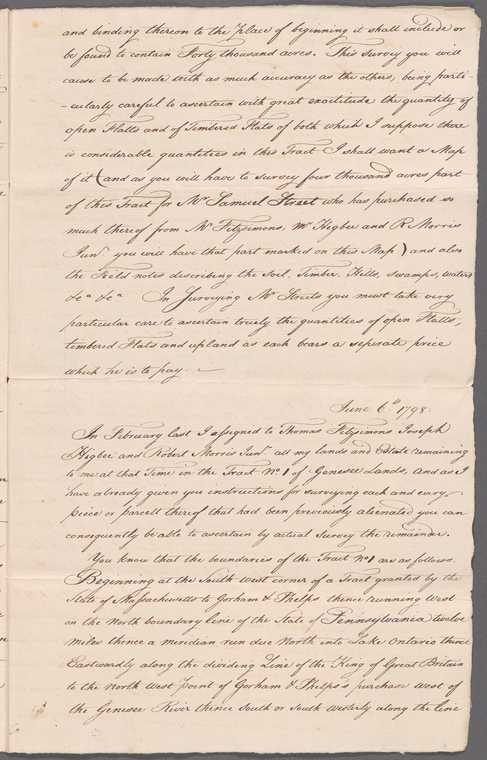 and binding thereon to the place of beginning it shall include or
be found to contain Forty thousand acres. This Survey you will
cause to be made with as much accuracy as the others, being parti-
-cularly careful to ascertain with great exactitude the quantity of
open Flatts and of Timbered Flats of both which I suppose there
is considerable quantities in this Tract I shall want a Map
of it (and as you will have to survey four thousand acres part
of this Tract for Mr Samuel Street who has purchased so
much thereof from Mr Fitzsimons, Mr Higbee and R Morris
Junr you will have that part marked on this Map) and also
the Field notes describing the Soil, Timber, Hills, swamps, waters
&ca &ca In Surveying Mr Streets you must take very
particular care to ascertain truely the quantities of open Flatts,
timbered Flats and upland as each bears a seperate price
which he is to pay. —
June 6th 1798
In February last I assigned to Thomas Fitzsimons Joseph
Higbee and Robert Morris Junr all my lands and Estate remaining
to me at that Time in the Tract No 1 of Genesee Lands, and as I
have already given you instructions for surveying each and every
piece or parcell thereof that had been previously alienated you can
consequently be able to ascertain by actual Survey the remainder.
You know that the boundaries of the Tract No 1 are as follows.
Beginning at the South west corner of a Tract granted by the
State of Massachusetts to Gorham & Phelps thence running West
on the North boundary line of the State of Pennsylvania twelve
miles thence a meridian run due North into Lake Ontario thence
Eastwardly along the dividing Line of the King of Great Britain
to the North West Point of Gorham & Phelps's purchase west of
the Genesee River thence South or South westerly along the line